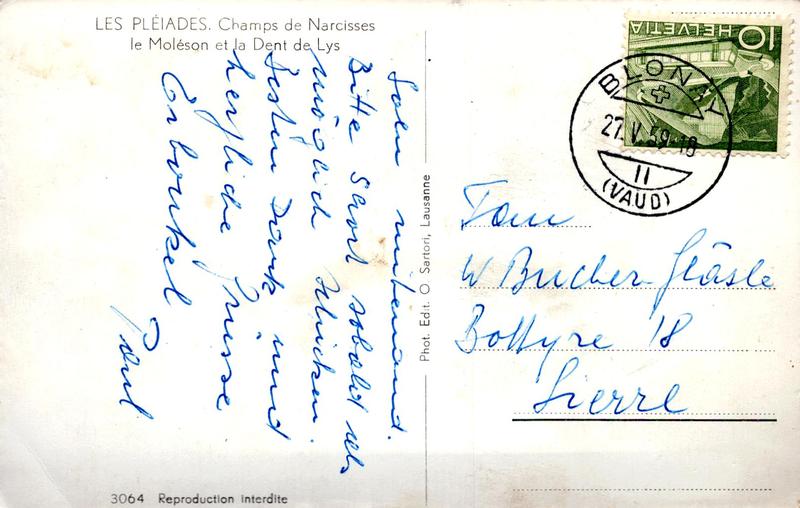 LES PLÉIADES. Champs de Narcisses
le Moléson et la Dent de Lys
mitenand.
Bitte Short sobald als
möglich schicken.
Besten Dank und
herzliche Grüsse
Erbonkel
Paul
3064 Reproduction interdite
Phot. Edit. O. Sartori, Lausanne
HELVETIA
10
BLONAY
27.V.59-18
II
(VAUD)
Fam
W Bucher-Gläsle
Bottyre 18
Sierre